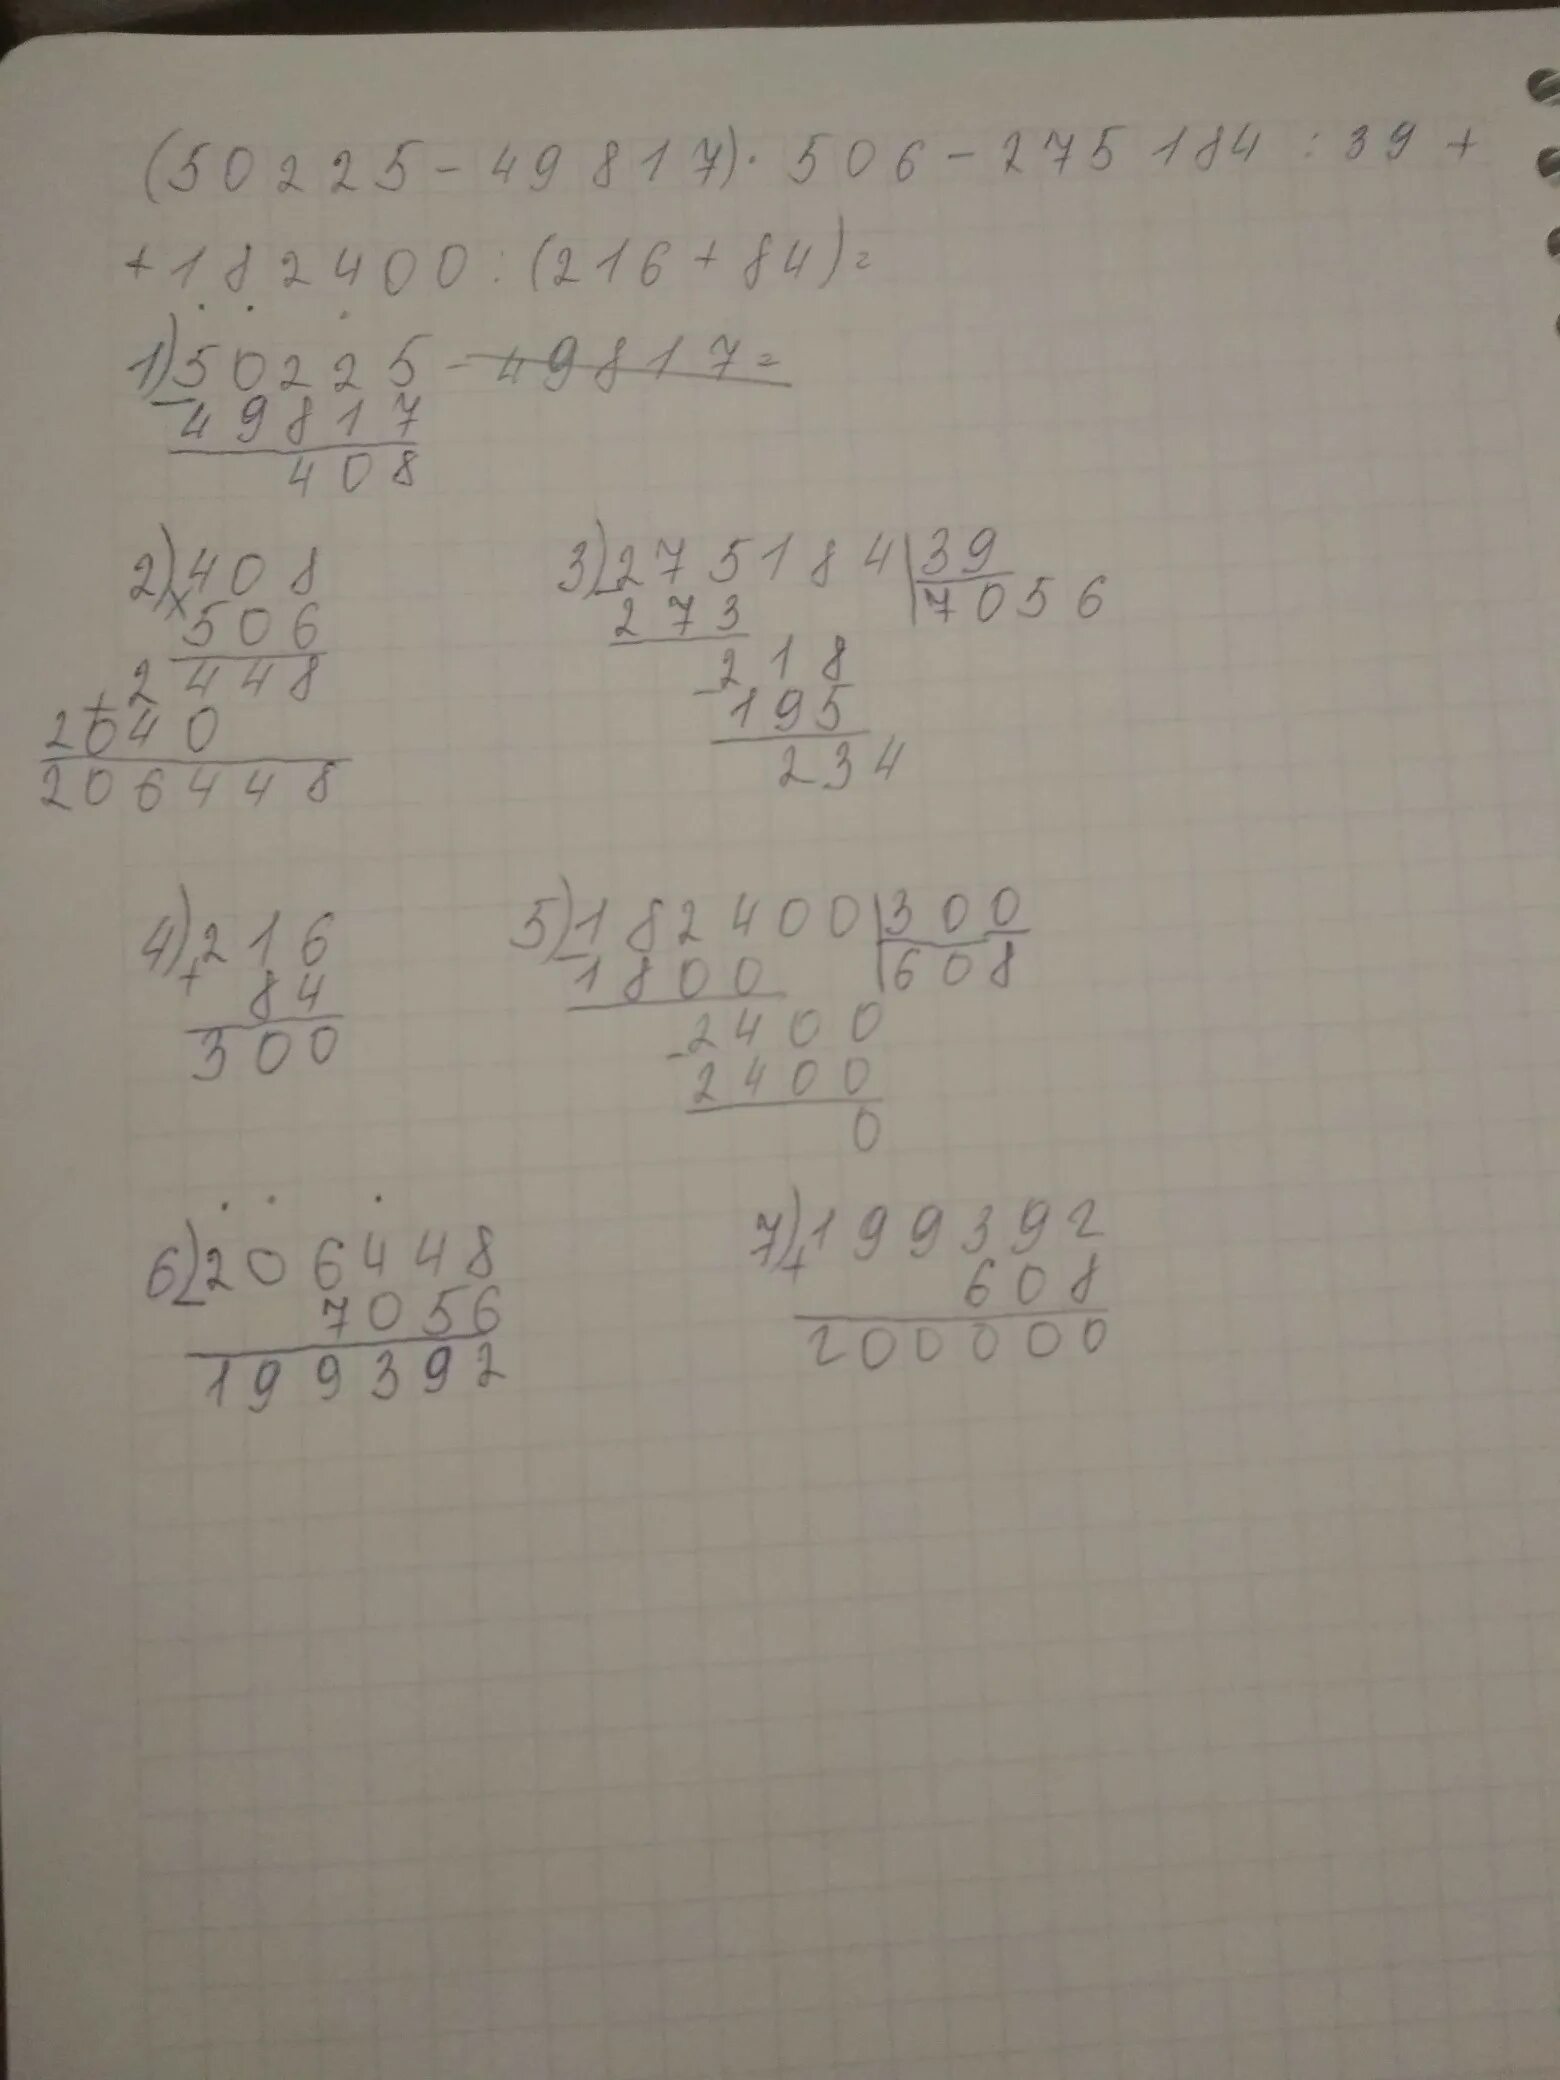 (50225-49817)·506-275184:39+
+182400:(216+84)=
1) 50225-49817=
- 49817
408
2) 408
× 506
2448
+
2040
206448
3) 275184|39
- 273 |7056
218
- 195
234
4) 216
+ 84
300
5) 182400|300
- 1800 |608
2400
- 2400
0
6) 206448
- 7056
199392
7) 199392
+ 608
200000